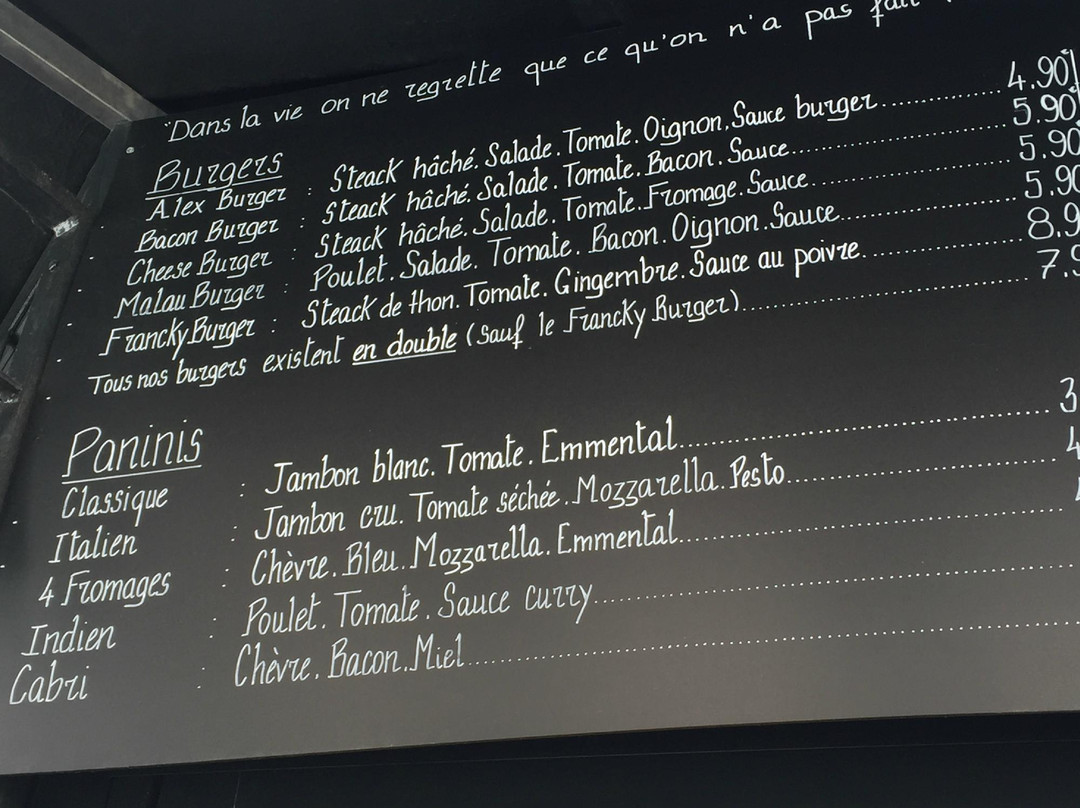 "Dans la vie on ne regrette que ce qu'on n'a pas fait
Burgers
Alex Burger : Steack hâché. Salade. Tomate. Oignon. Sauce burger............4.90
Bacon Burger : Steack hâché. Salade. Tomate. Bacon. Sauce............5.90
Cheese Burger : Steack hâché. Salade. Tomate. Fromage. Sauce............5.90
Malau Burger : Poulet. Salade. Tomate. Bacon. Oignon. Sauce............5.90
Francky Burger : Steack de thon. Tomate. Gingembre. Sauce au poivre............8.9
Tous nos burgers existent en double (Sauf le Francky Burger)............7.9
Paninis
Classique : Jambon blanc. Tomate. Emmental............3
Italien : Jambon cru. Tomate séchée. Mozzarella. Pesto............4
4 Fromages : Chèvre. Bleu. Mozzarella. Emmental............
Indien : Poulet. Tomate. Sauce curry............
Cabri : Chèvre. Bacon. Miel............